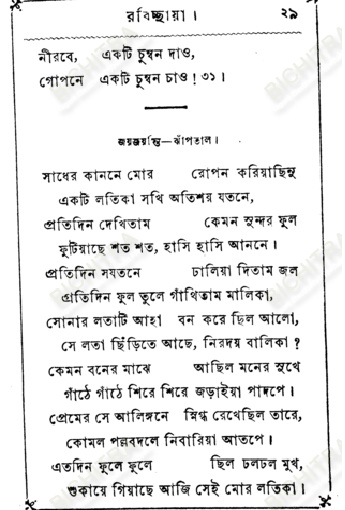 রবিচ্ছায়া। ২৯
নীরবে, একটি চুম্বন দাও,
গোপনে একটি চুম্বন চাও! ৩১।
জয়জয়ন্তি—ঝাঁপতাল॥
সাধের কাননে মোর রোপন করিয়াছিনু
একটি লতিকা সখি অতিশয় যতনে,
প্রতিদিন দেখিতাম কেমন সুন্দর ফুল
ফুটিয়াছে শত শত, হাসি হাসি আননে।
প্রতিদিন সযতনে ঢালিয়া দিতাম জল
প্রতিদিন ফুল তুলে গাঁথিতাম মালিকা,
সোনার লতাটি আহা বন করে ছিল আলো,
সে লতা ছিঁড়িতে আছে, নিরদয় বালিকা?
কেমন বনের মাঝে আছিল মনের সুখে
গাঁঠে গাঁঠে শিরে শিরে জড়াইয়া পাদপে।
প্রেমের সে আলিঙ্গনে স্নিগ্ধ রেখেছিল তারে,
কোমল পল্লবদলে নিবারিয়া আতপে।
এতদিন ফুলে ফুলে ছিল ঢলঢল মুখ,
শুকায়ে গিয়াছে আজি সেই মোর লতিকা।
BICHITRA